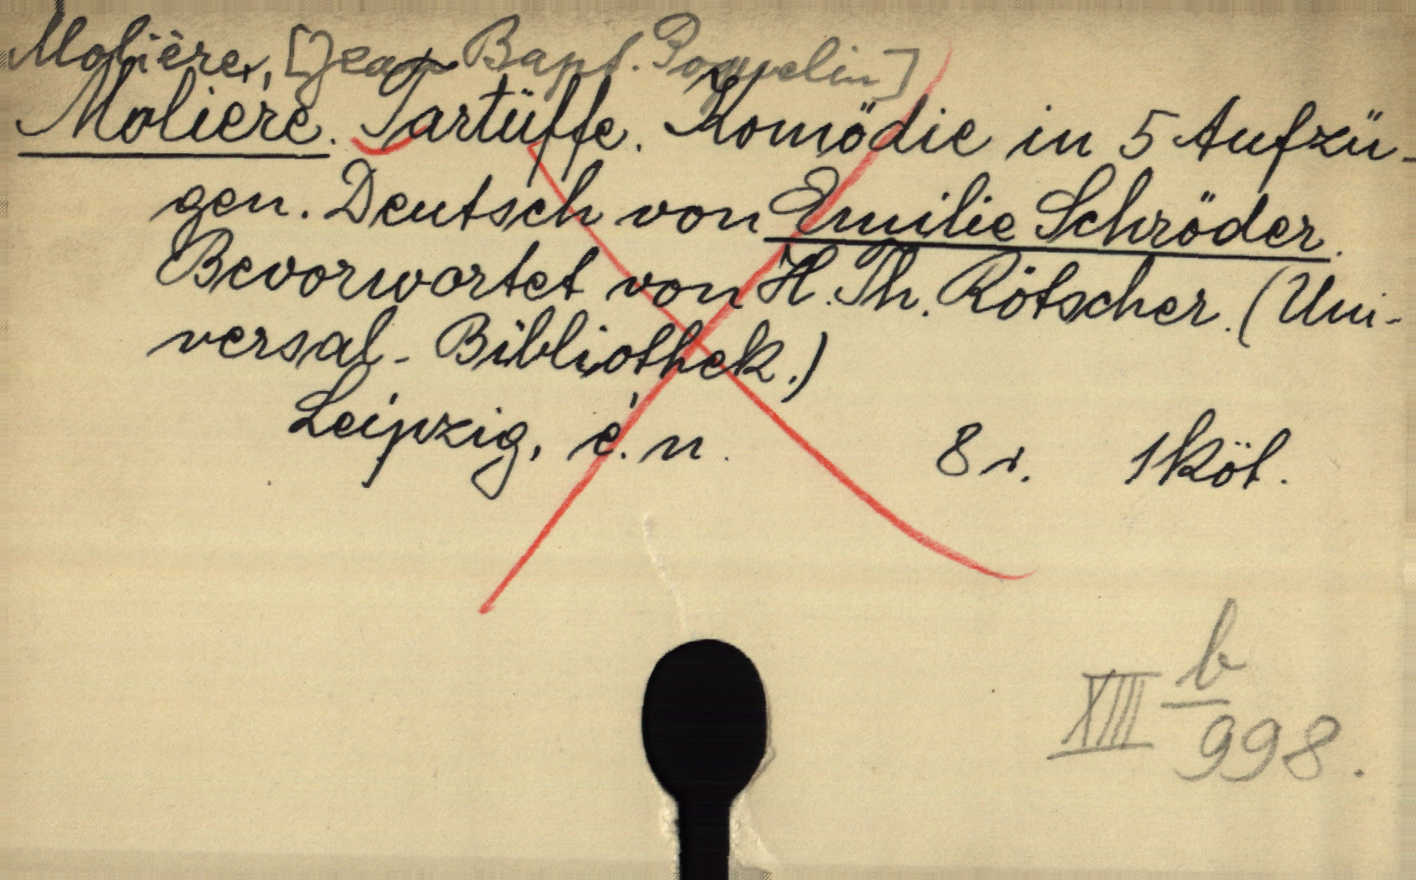 Molière, [Jean Bapt. Poquelin]
Molière. Tartüffe. Komödie in 5 Aufzü-
gen. Deutsch von Emilie Schröder.
Bevorwortet von H. Th. Rötscher. (Uni-
versal-Bibliothek.)
Leipzig, é. n. 8 r. 1 köt.
XIII b/998.